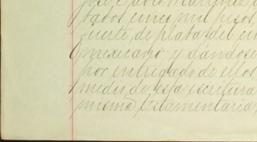 tados, cinco mil pesos
fuerte, de plata, del cu
mexicano y dándose
por entregado de ellos
medio de esta escritura
misma testamentaria,